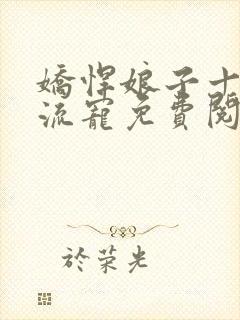 嬌悍娘子十
流寵免費閱
於榮光